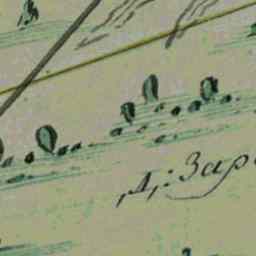 д: Зар